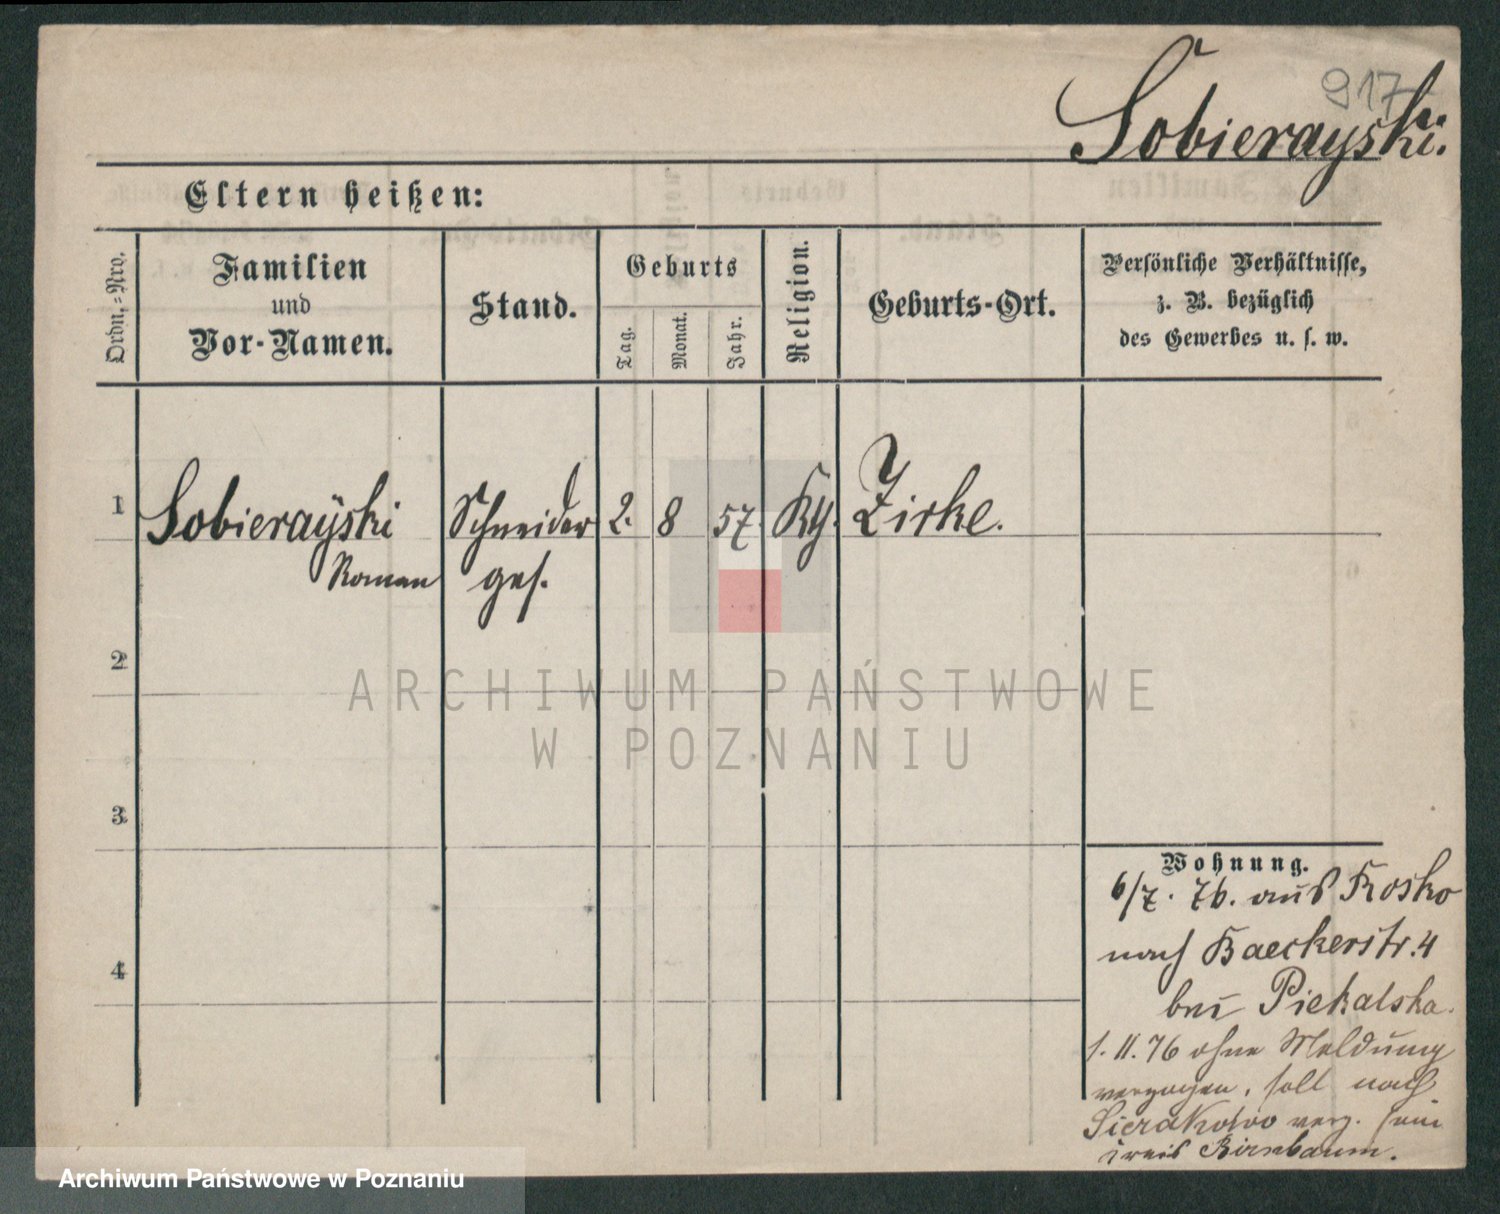 917
Sobierayski.
Eltern heißen:
Ordn.=Nro.
Familien
und
Vor-Namen.
Stand.
Geburts
Tag.
Monat.
Jahr.
Religion.
Geburts-Ort.
Persönliche Verhältnisse,
z. B. bezüglich
des Gewerbes u. s. w.
1 Sobierayski Schneider 2. 8 57. Zirke.
Roman ges.
2
3
4
ARCHIWUM PAŃSTWOWE
W POZNANIU
Wohnung.
6/7. 76. aus Rosko
nach Baeckerstr. 4
bei Piekalska.
1. 11. 76 ohne Meldung
verzogen, soll nach
Sierakowo verz. sein
Kreis Birnbaum.
Archiwum Państwowe w Poznaniu